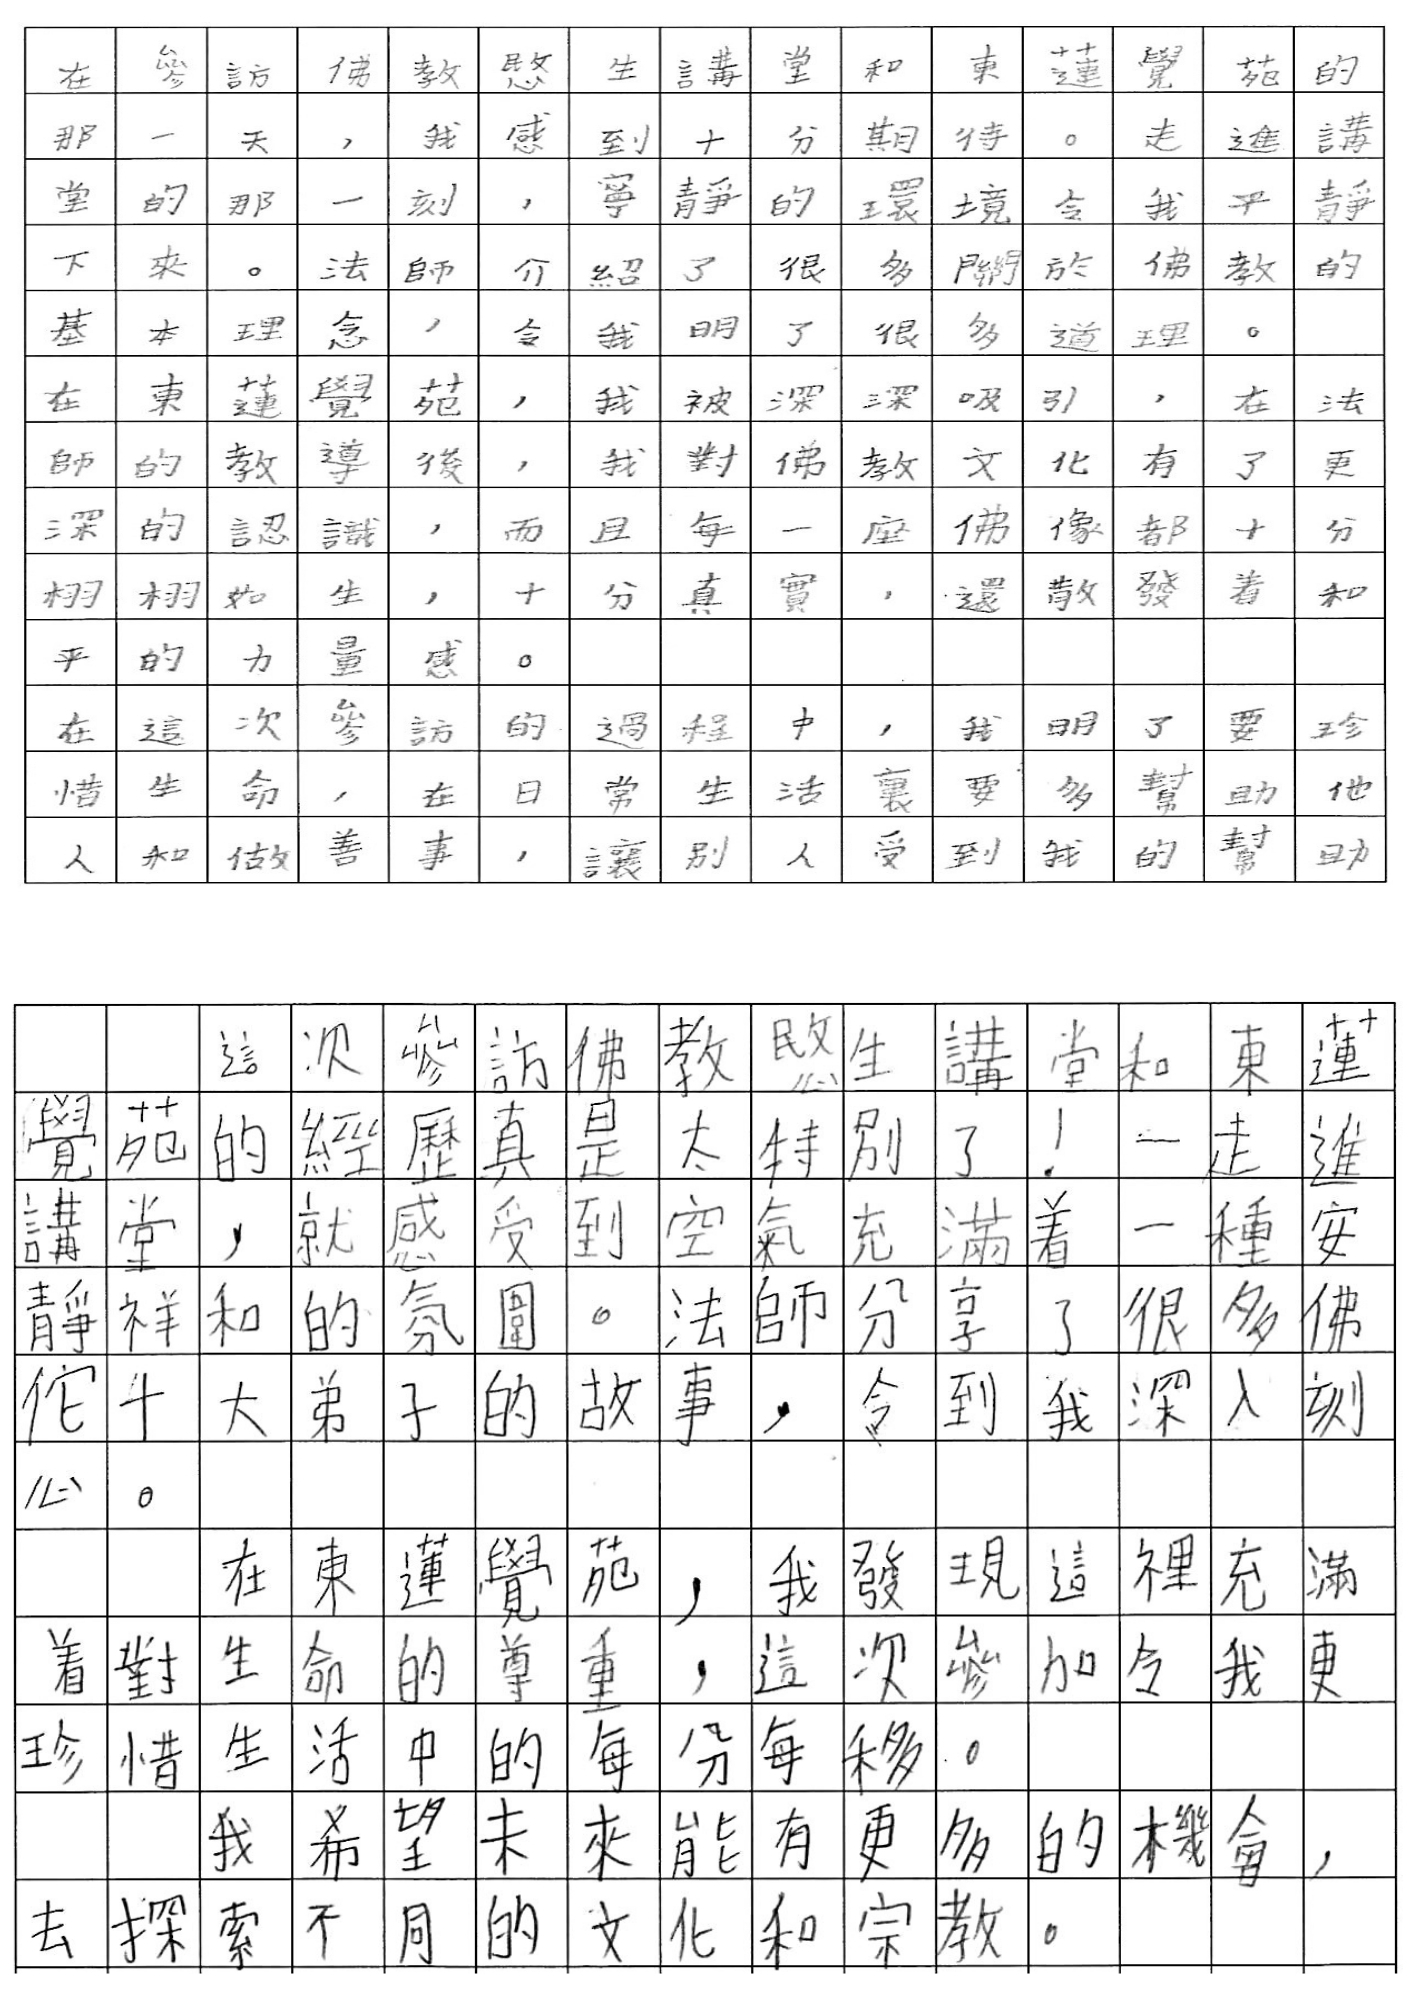 在參訪佛教愍生講堂和東蓮覺苑的
那一天，我感到十分期待。走進講
堂的那一刻，寧靜的環境令我平靜
下來。法師介紹了很多關於佛教的
基本理念，令我明了很多道理。
在東蓮覺苑，我被深深吸引，在法
師的教導後，我對佛教文化有了更
深的認識，而且每一座佛像都十分
栩栩如生，十分真實，還散發着和
平的力量感。
在這次參訪的過程中，我明了要珍
惜生命，在日常生活裏要多幫助他
人和做善事，讓別人受到我的幫助
這次參訪佛教愍生講堂和東蓮
覺苑的經歷真是太特別了！一走進
講堂，就感受到空氣充滿着一種安
靜祥和的氛圍。法師分享了很多佛
佗十大弟子的故事，令到我深入刻
心。
在東蓮覺苑，我發現這裡充滿
着對生命的尊重，這次參加令我更
珍惜生活中的每分每移。
我希望未來能有更多的機會，
去探索不同的文化和宗教。